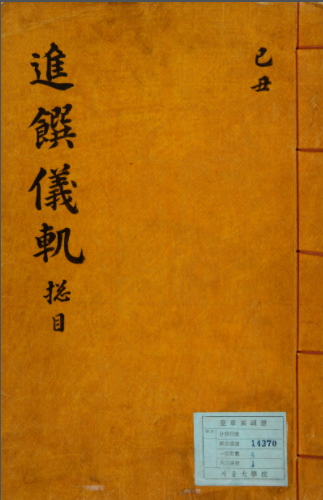 己丑
進饌儀軌 捴目
奎章閣圖書
14370
서울大學校